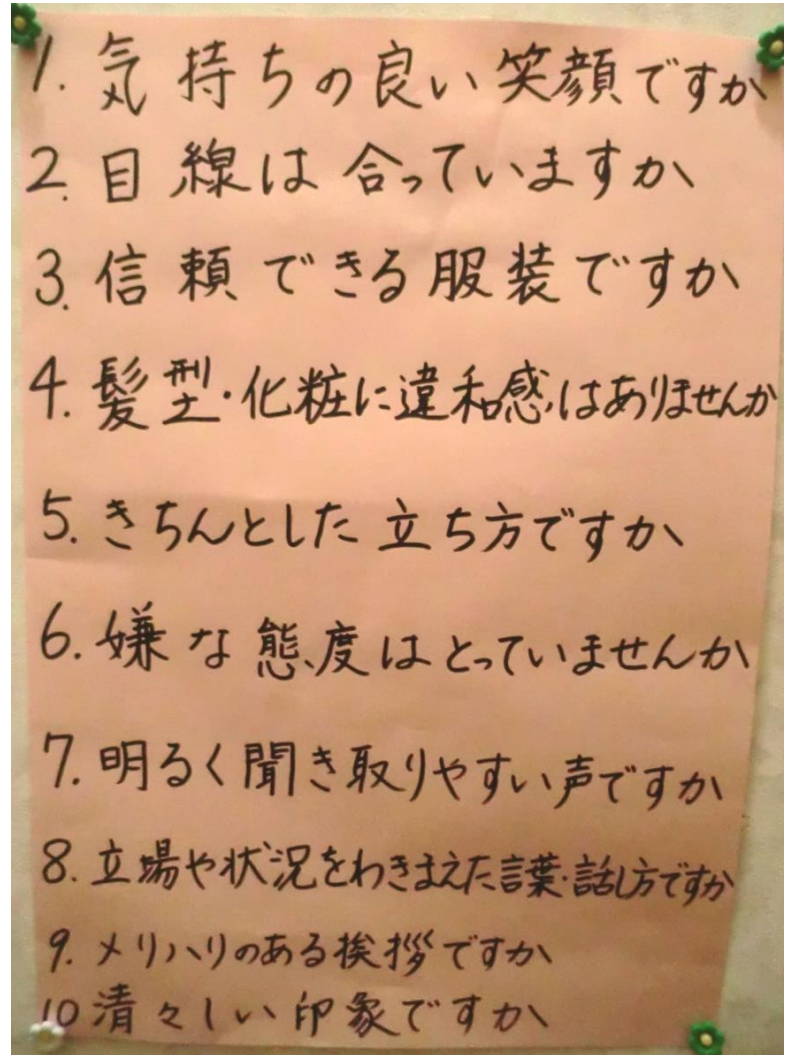 1. 気持ちの良い笑顔ですか
2. 目線は合っていますか
3. 信頼できる服装ですか
4. 髪型・化粧に違和感はありませんか
5. きちんとした立ち方ですか
6. 嫌な態度はとっていませんか
7. 明るく聞き取りやすい声ですか
8. 立場や状況をわきまえた言葉・話し方ですか
9. メリハリのある挨拶ですか
10 清々しい印象ですか